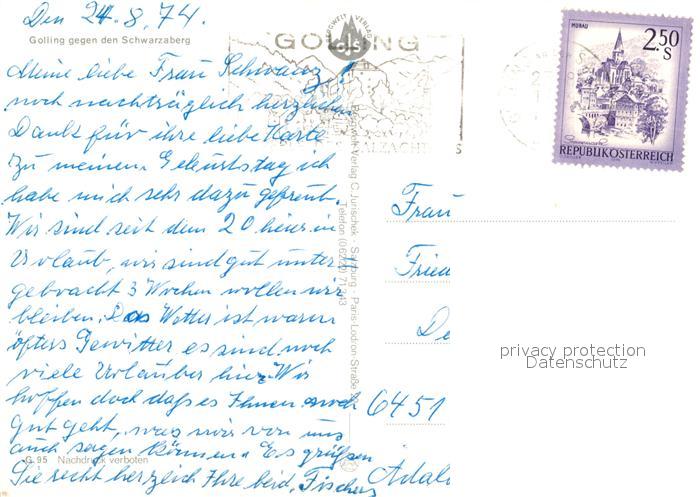 Den 24.8.74.
Golling gegen den Schwarzaberg
GOLLING
Meine liebe Frau Schwanz!
noch nachträglich herzlichen
Dank für ihre liebe Karte
zu meinem Geburtstag ich
habe mich sehr dazu gefreut.
Wir sind seit dem 20 hier in
Urlaub, wir sind gut unter-
gebracht 3 Wochen wollen wir
bleiben. Das Wetter ist warm
öfters Gewitter es sind noch
viele Urlauber hier Wir
hoffen doch daß es Ihnen noch
gut geht, was wir von uns
auch sagen können. Es grüßen
Sie recht herzlich Ihre beid. Fischers
G 95 Nachdruck verboten
Verlag C. Jurischek · Salzburg · Paris-Lodron-Straße
Telefon (06222) 71343
MURAU
2.50
S
REPUBLIK ÖSTERREICH
Frau
Frie
De
6451
Adal
privacy protection
Datenschutz